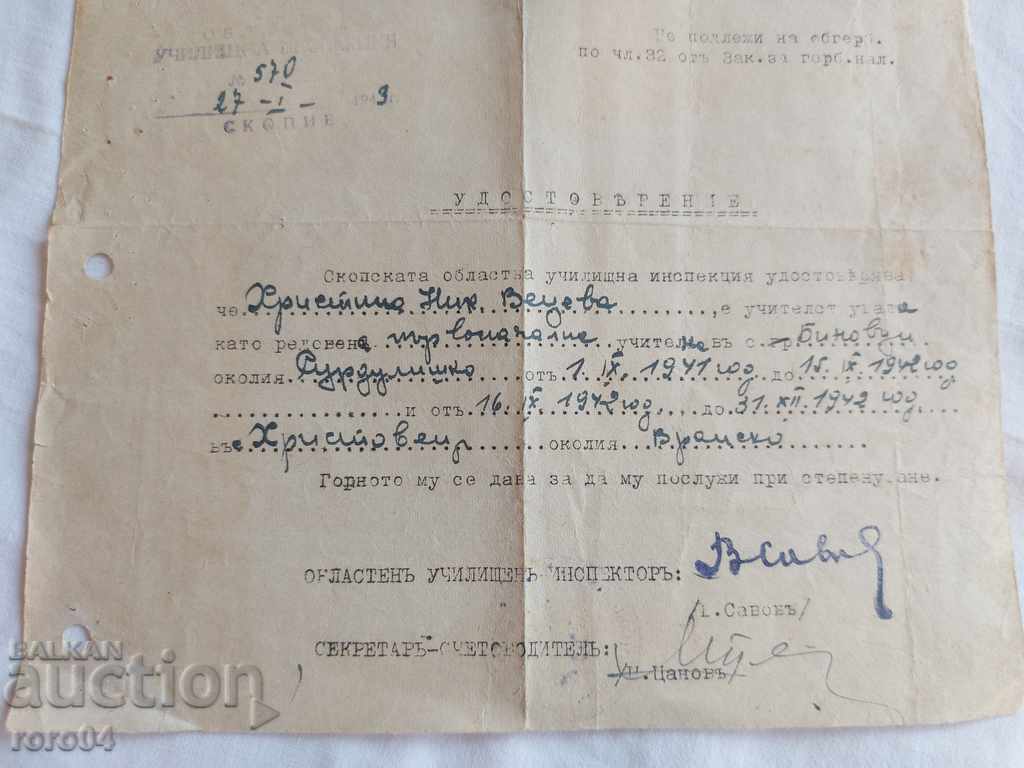 ОБ
УЧИЛИЩНА ИНСПЕКЦИЯ
№ 570
27 - I - 1943.
СКОПИЕ
Не подлежи на обгерб.
по чл.32 отъ Зак.за горб.нал.
УДОСТОВѢРЕНИЕ
Скопската областна училищна инспекция удостовѣрява,
че Христина Ник. Вецева, е учителствувала
като редовена първоначална учителка въ с. Биновци
околия Сурдулишка отъ 1. IX. 1941 год до 15. IX 1942 год
и отъ 16. IX 1942 год, до 31. XII. 1942 год,
въ с Христовец околия Вранска
Горното му се дава за да му послужи при степенуване.
ОБЛАСТЕНЪ УЧИЛИЩЕНЪ ИНСПЕКТОРЪ:
/I.Савовъ/
СЕКРЕТАРЪ-СЧЕТОВОДИТЕЛЪ:
/Н.Цановъ/
BALKAN
auction
roro04